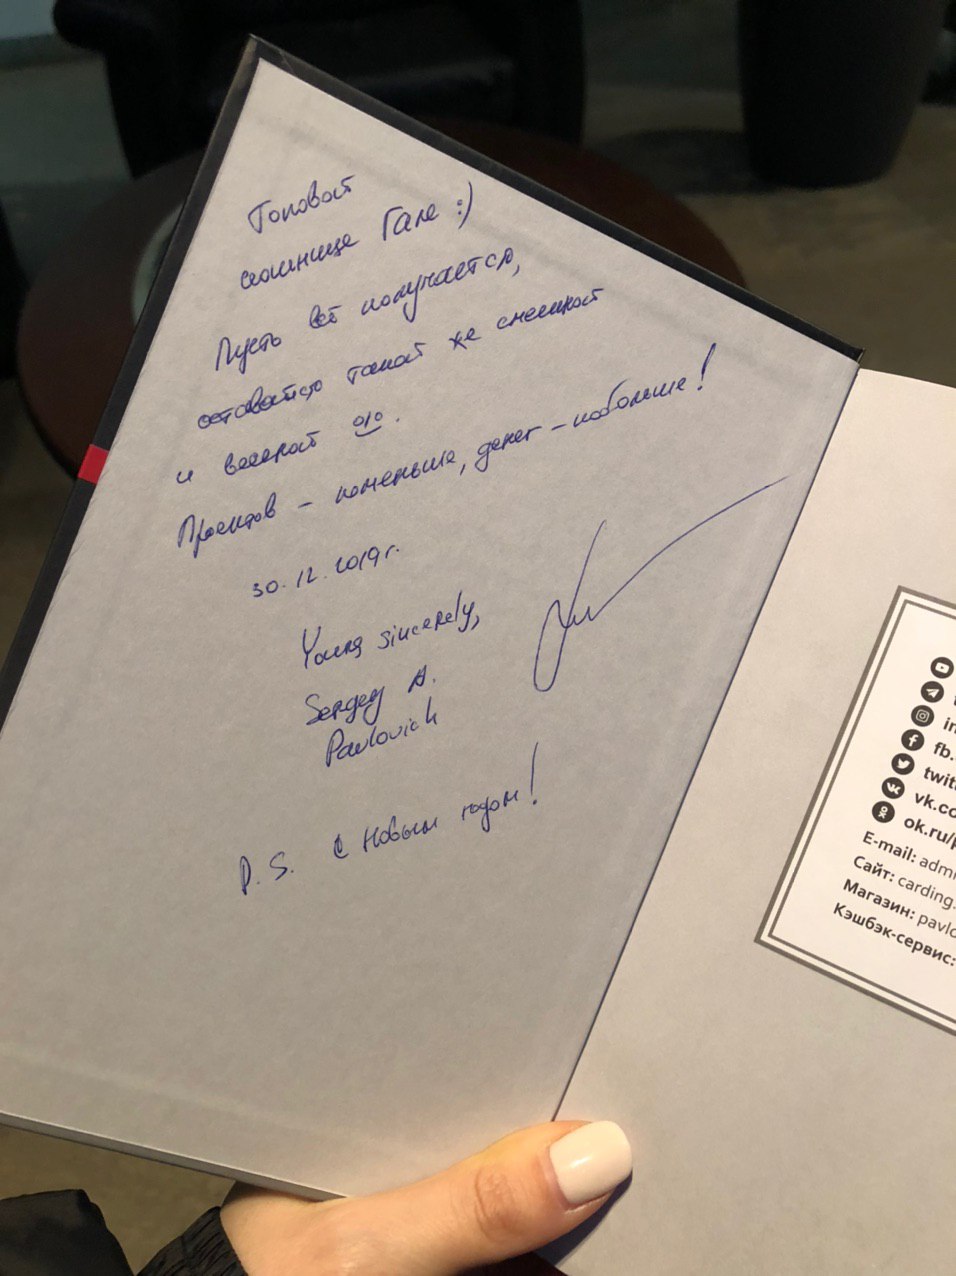 Топовой
сошнице Гале :)
Пусть всё получается,
оставайся такой же смешной
и весёлой
Проектов - поменьше, денег - побольше!
30.12.2019г.
Yours sincerely,
Sergey A.
Pavlovich
P.S. С Новым годом!
in
fb.
twit
vk.co
ok.ru/p
E-mail: admi
Сайт: carding.
Магазин: pavlo
Кэшбэк-сервис: